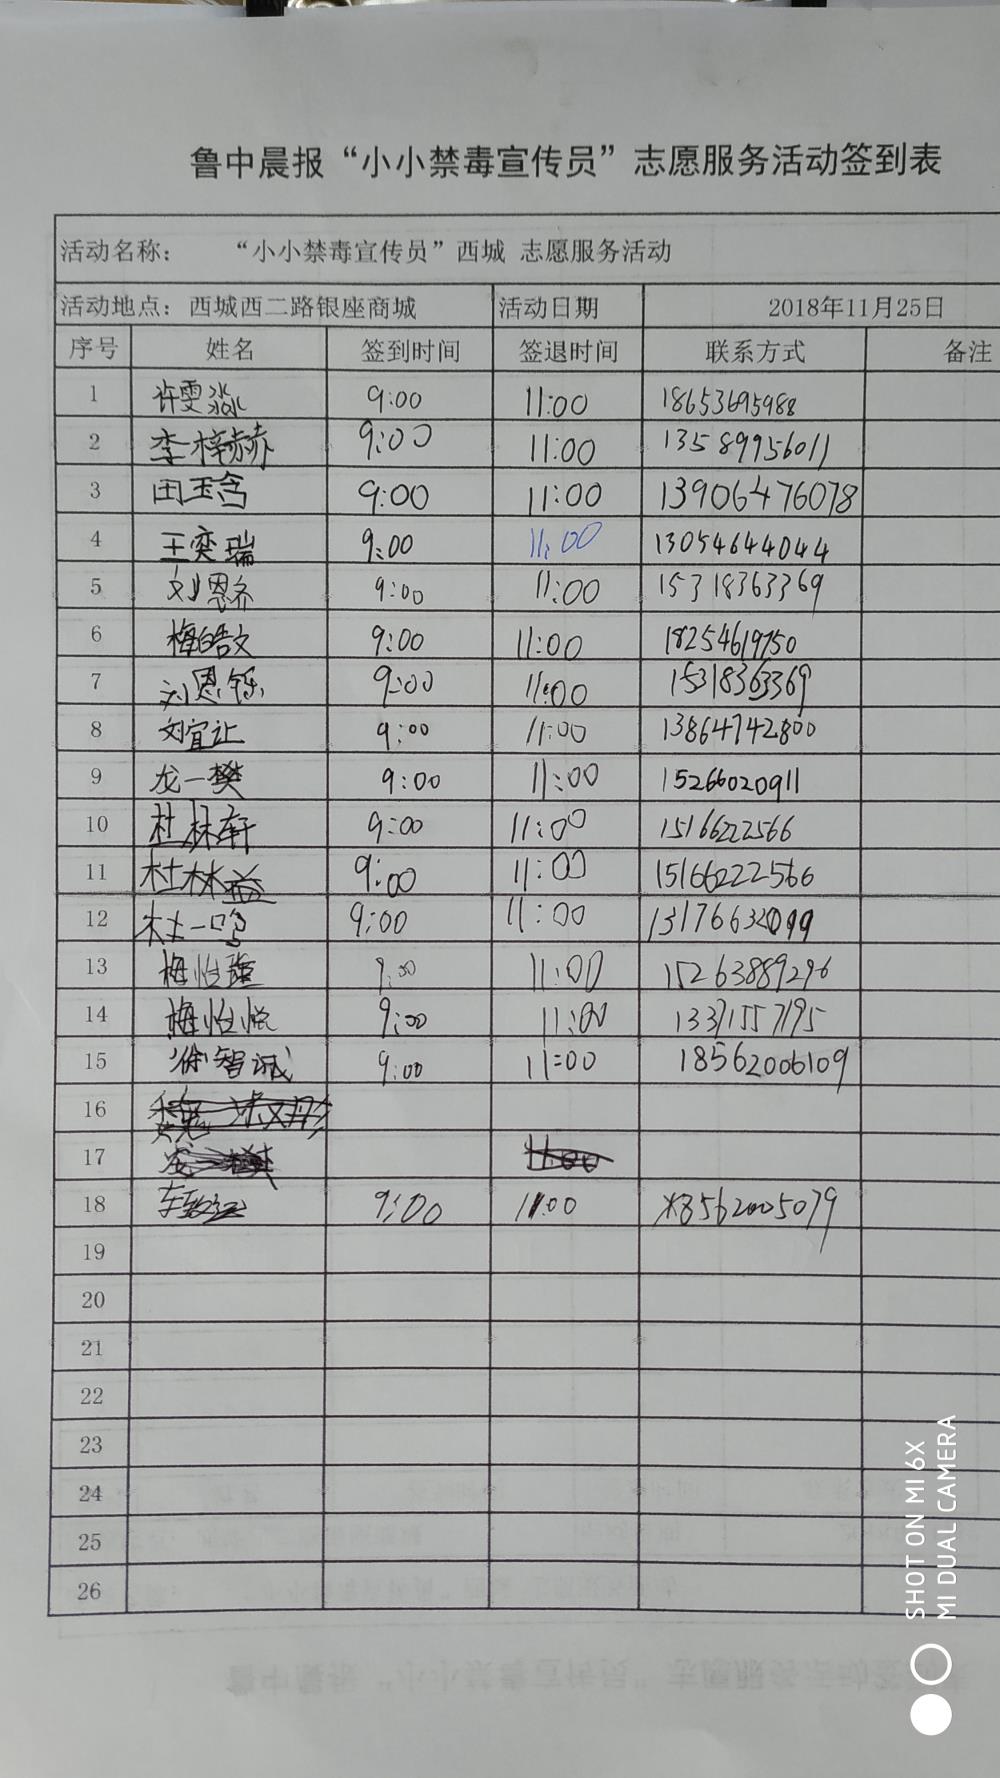 鲁中晨报“小小禁毒宣传员”志愿服务活动签到表
活动名称： “小小禁毒宣传员”西城 志愿服务活动
活动地点：西城西二路银座商城 活动日期 2018年11月25日
序号 姓名 签到时间 签退时间 联系方式 备注
1 许雯淼 9:00 11:00 18653695988
2 李梓赫 9:00 11:00 13589956011
3 田玉含 9:00 11:00 13906476078
4 王奕瑞 9:00 11:00 13054644044
5 刘恩齐 9:00 11:00 15318363369
6 梅皓文 9:00 11:00 18254619750
7 刘恩铄 9:00 11:00 15318363369
8 刘宜让 9:00 11:00 13864742800
9 龙一樊 9:00 11:00 15266020911
10 杜林轩 9:00 11:00 15166222566
11 杜林益 9:00 11:00 15166222566
12 杜一鸣 9:00 11:00 13176632099
13 梅怡 9:00 11:00 15263889296
14 梅怡悦 9:00 11:00 13371557195
15 徐智诚 9:00 11:00 18562006109
16
17 11:00
18 9:00 11:00 18562005079
19
20
21
22
23
24
25
26
SHOT ON MI 6X
MI DUAL CAMERA